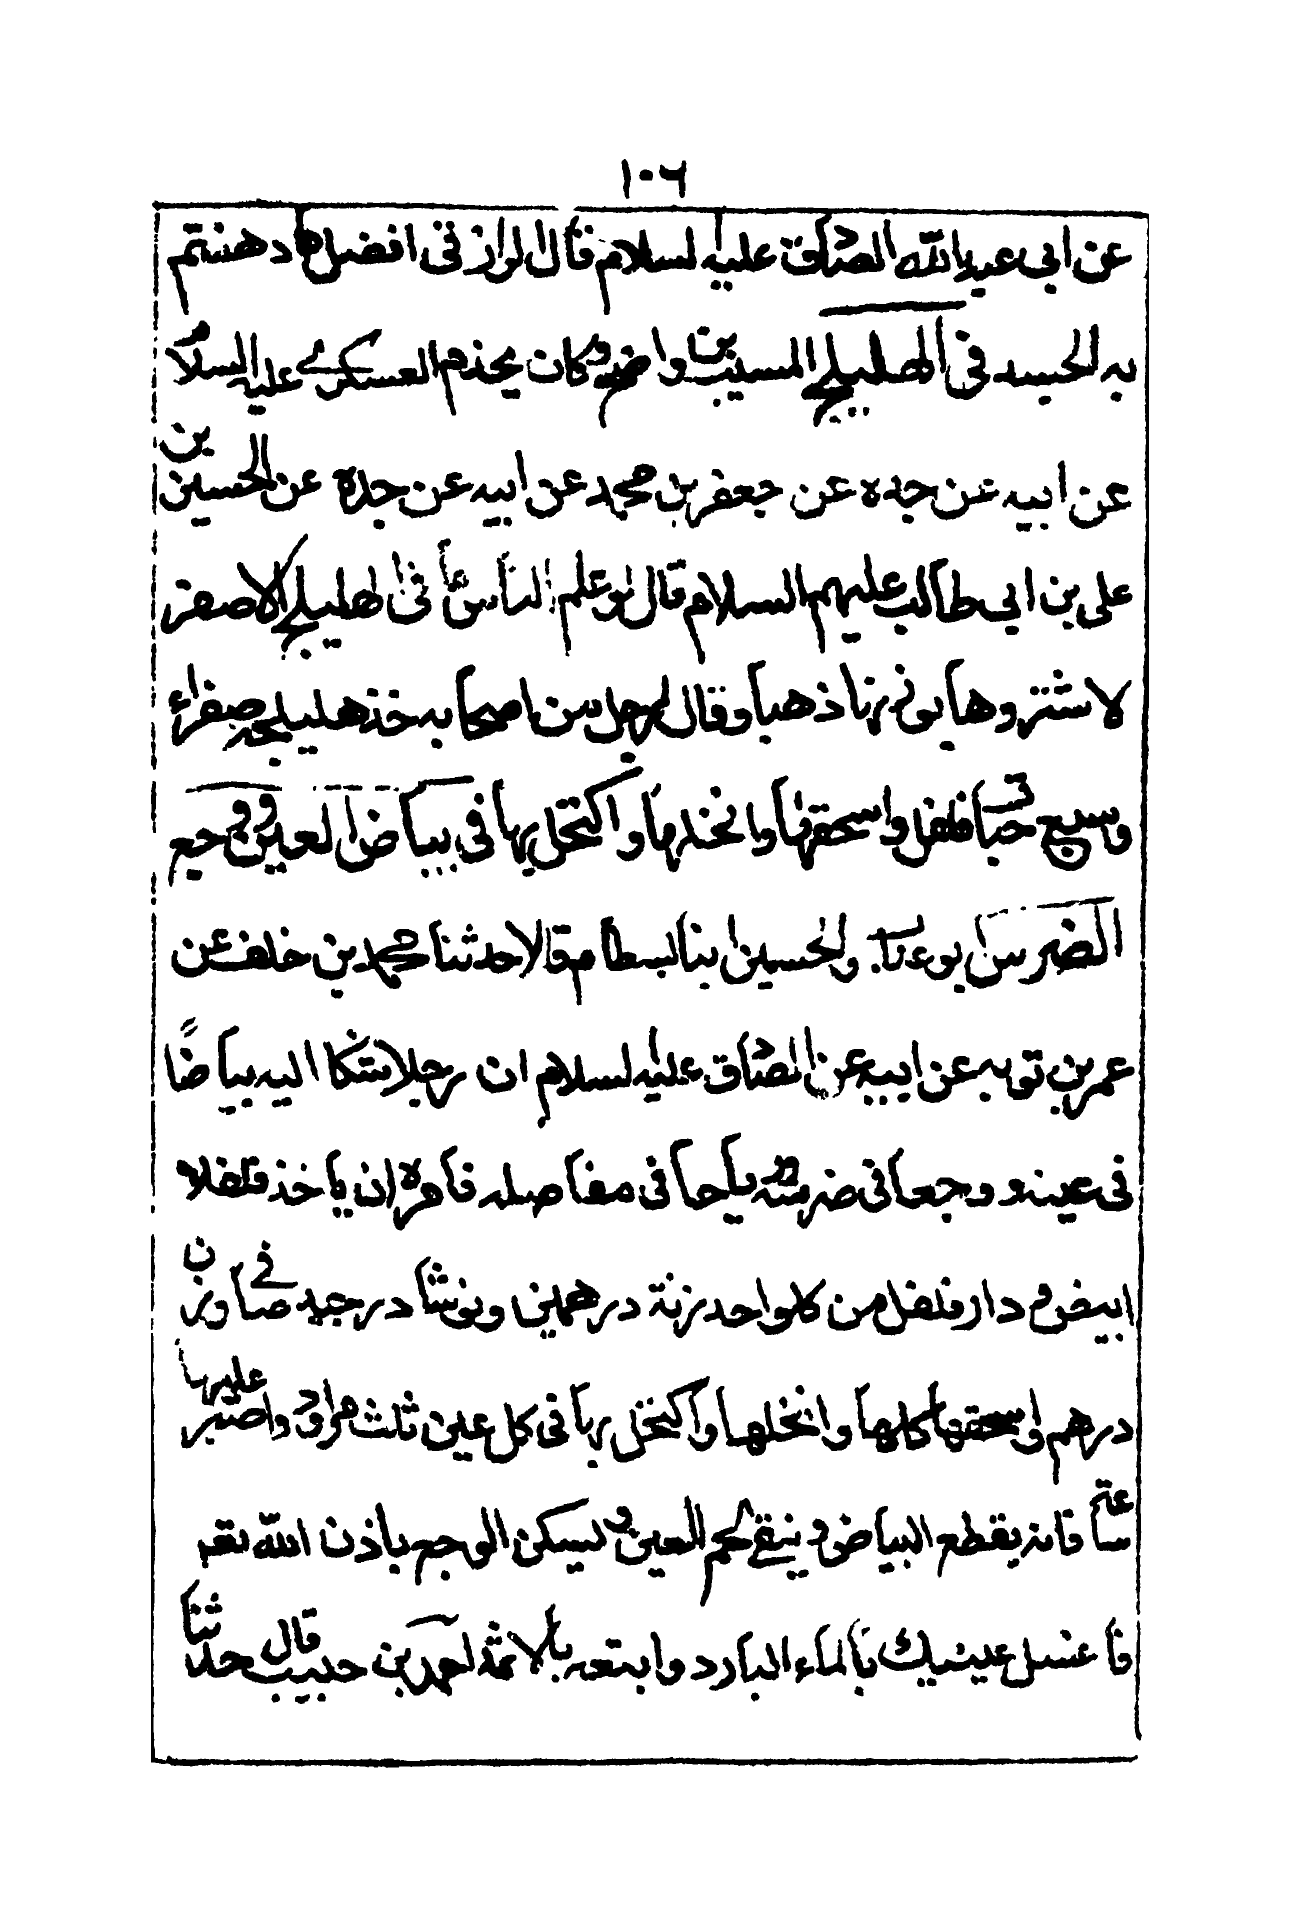 ١٠٦
عن ابي عبدالله الصادق عليه السلام قال الرازقى افضل ما دهنتم
به الجسد فى الهليلج المسيب بن واضح وكان يخدم العسكرى عليه السلام
عن ابيه عن جده عن جعفر بن محمد عن ابيه عن جده عن الحسين بن
على بن ابي طالب عليهم السلام قال لو علم الناس ما فى الهليلج الاصفر
لاشتروها بوزنها ذهبا وقال لرجل من اصحابه خذ هليلجه صفراء
وسبع حبات فلفل واسحقها وانخلها واكتحل بها فى بياض العين ووجع
الضرس والحسين ابنا بسطام قالا حدثنا محمد بن خلف عن
عمر بن توبه عن ابيه عن الصادق عليه السلام ان رجلا شكا اليه بياضا
فى عينه ووجعا فى ضرسه رياحا فى مفاصله فامره ان ياخذ فلفلا
ابيض ودار فلفل من كل واحد زنة درهمين ونوشادر جيد صافى وزن
درهم واسحقها كلها وانخلها واكتحل بها فى كل عين ثلث مراود واصبر عليها
ساعة فانه يقطع البياض وينقى لحم العين ويسكن الوجع باذن الله تعم
فاغسل عينيك بالماء البارد واتبعه بالاثمد احمد بن حبيب قال حدثنا